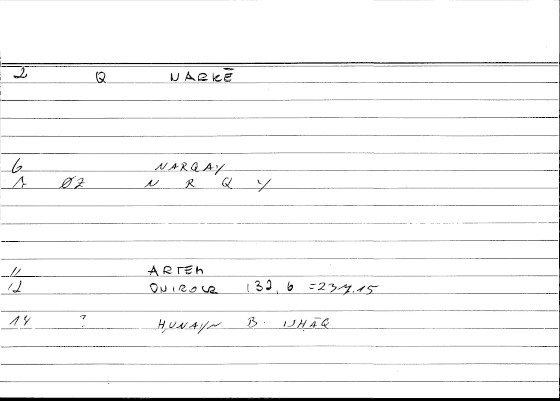 2 Q NARKĒ
6 NARQAY
1 ØZ N R Q Y
11 ARTEM
12 ONIROCR 132, 6 = 237.15
14 ? HUNAYN B. ISHĀQ